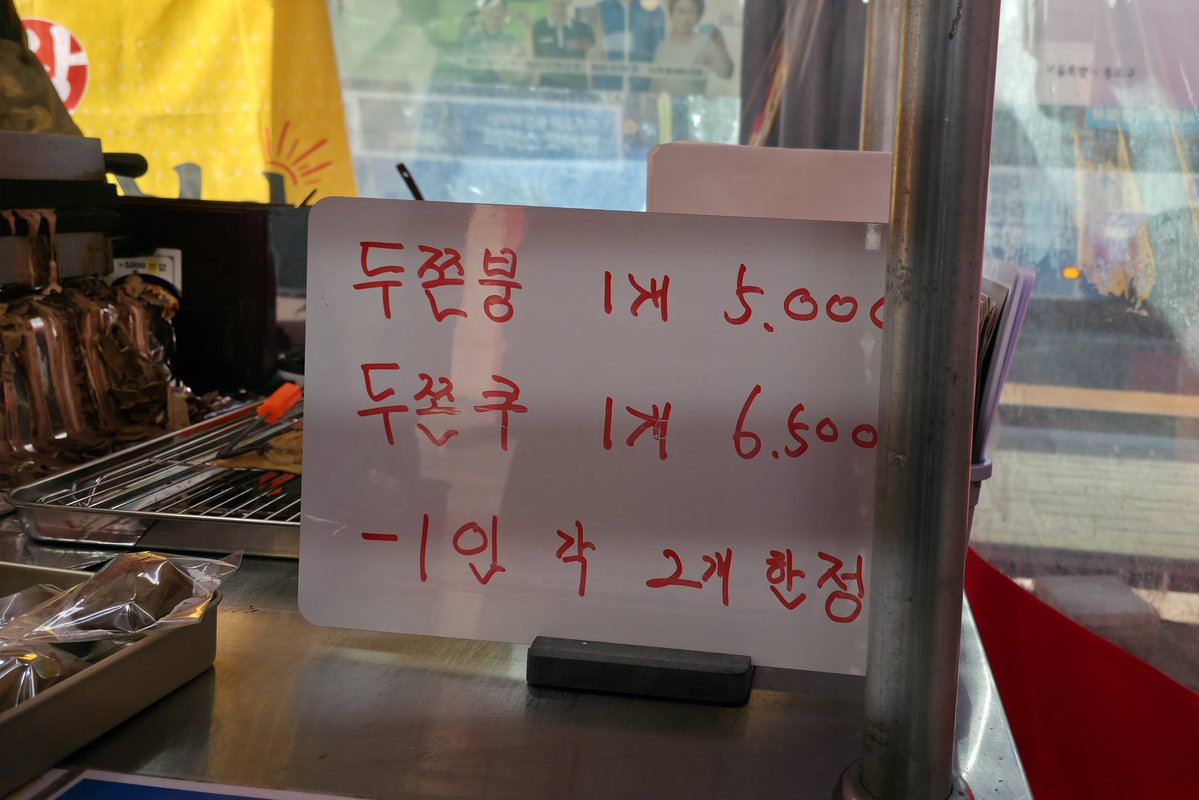 두쫀붕 1개 5.000
두쫀쿠 1개 6.500
-1인 각 2개 한정